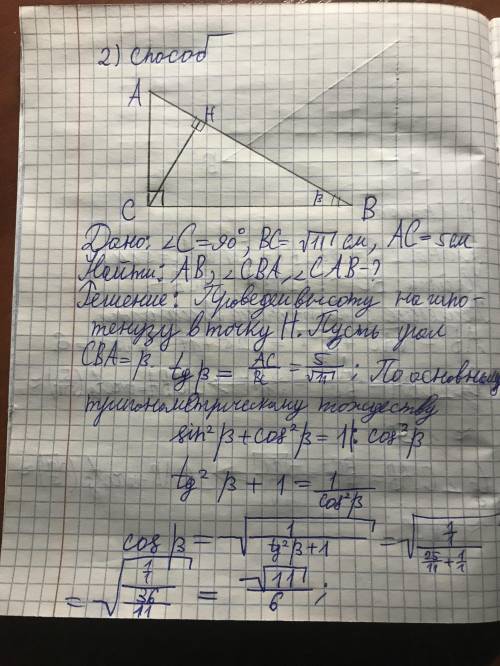 2) Способ
A
H
C
β
B
Дано: ∠C=90°, BC= √11 см, AC=5см
Найти: AB, ∠CBA, ∠CAB-?
Решение: Проведем высоту на гипо-
тенузу в точку H. Пусть угол
CBA=β. tgβ = AC/BC = 5/√11; По основным
тригонометрическому тождеству
sin²β+cos²β=1|: cos²β
tg²β + 1 = 1/cos²β
cos β = √(1/(tg²β+1)) = √((1/1)/(25/11+1/1))
= √((1/1)/(36/11)) = √11/6;